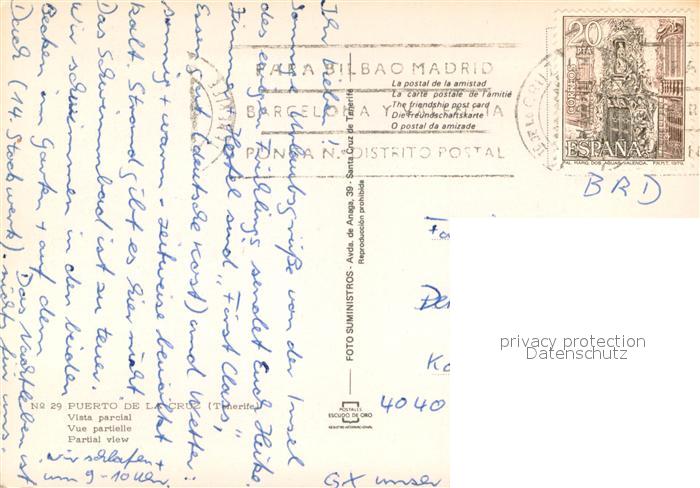 Ihr beide!
Sonnige Urlaubsgrüße von der Insel
des ewigen Frühlings sendet Euch Heike.
Zimmer + Hotel sind „First Class“,
Essen gut (deutsche Kost) und Wetter:
sonnig + warm - zeitweise bewölkt +
kalt. Strand gibt es hier nicht
Das Schwimmbad ist zu teuer.
Wir schwimmen in den beiden
Becken im Garten + auf dem
Dach (14 Stockwerk). Das Nachtleben ist
nichts für uns.
wir schlafen +
um 9-10 Uhr.
Nº 29 PUERTO DE LA CRUZ (Tenerife)
Vista parcial
Vue partielle
Partial view
FOTO SUMINISTROS - Avda. de Anaga, 39 - Santa Cruz de Tenerife
Reproducción prohibida
POSTALES
ESCUDO DE ORO
REGISTRO INTERNACIONAL
PARA BILBAO MADRID
BARCELONA Y VALENCIA
PONGA Nº DISTRITO POSTAL
La postal de la amistad
La carte postale de l'amitié
The friendship post card
Die Freundschaftskarte
O postal da amizade
20
PTA
CORREOS
ESPAÑA
PAL. MARQ. DOS AGUAS-VALENCIA. F.N.M.T. 1979
BRD
4040
privacy protection
Datenschutz